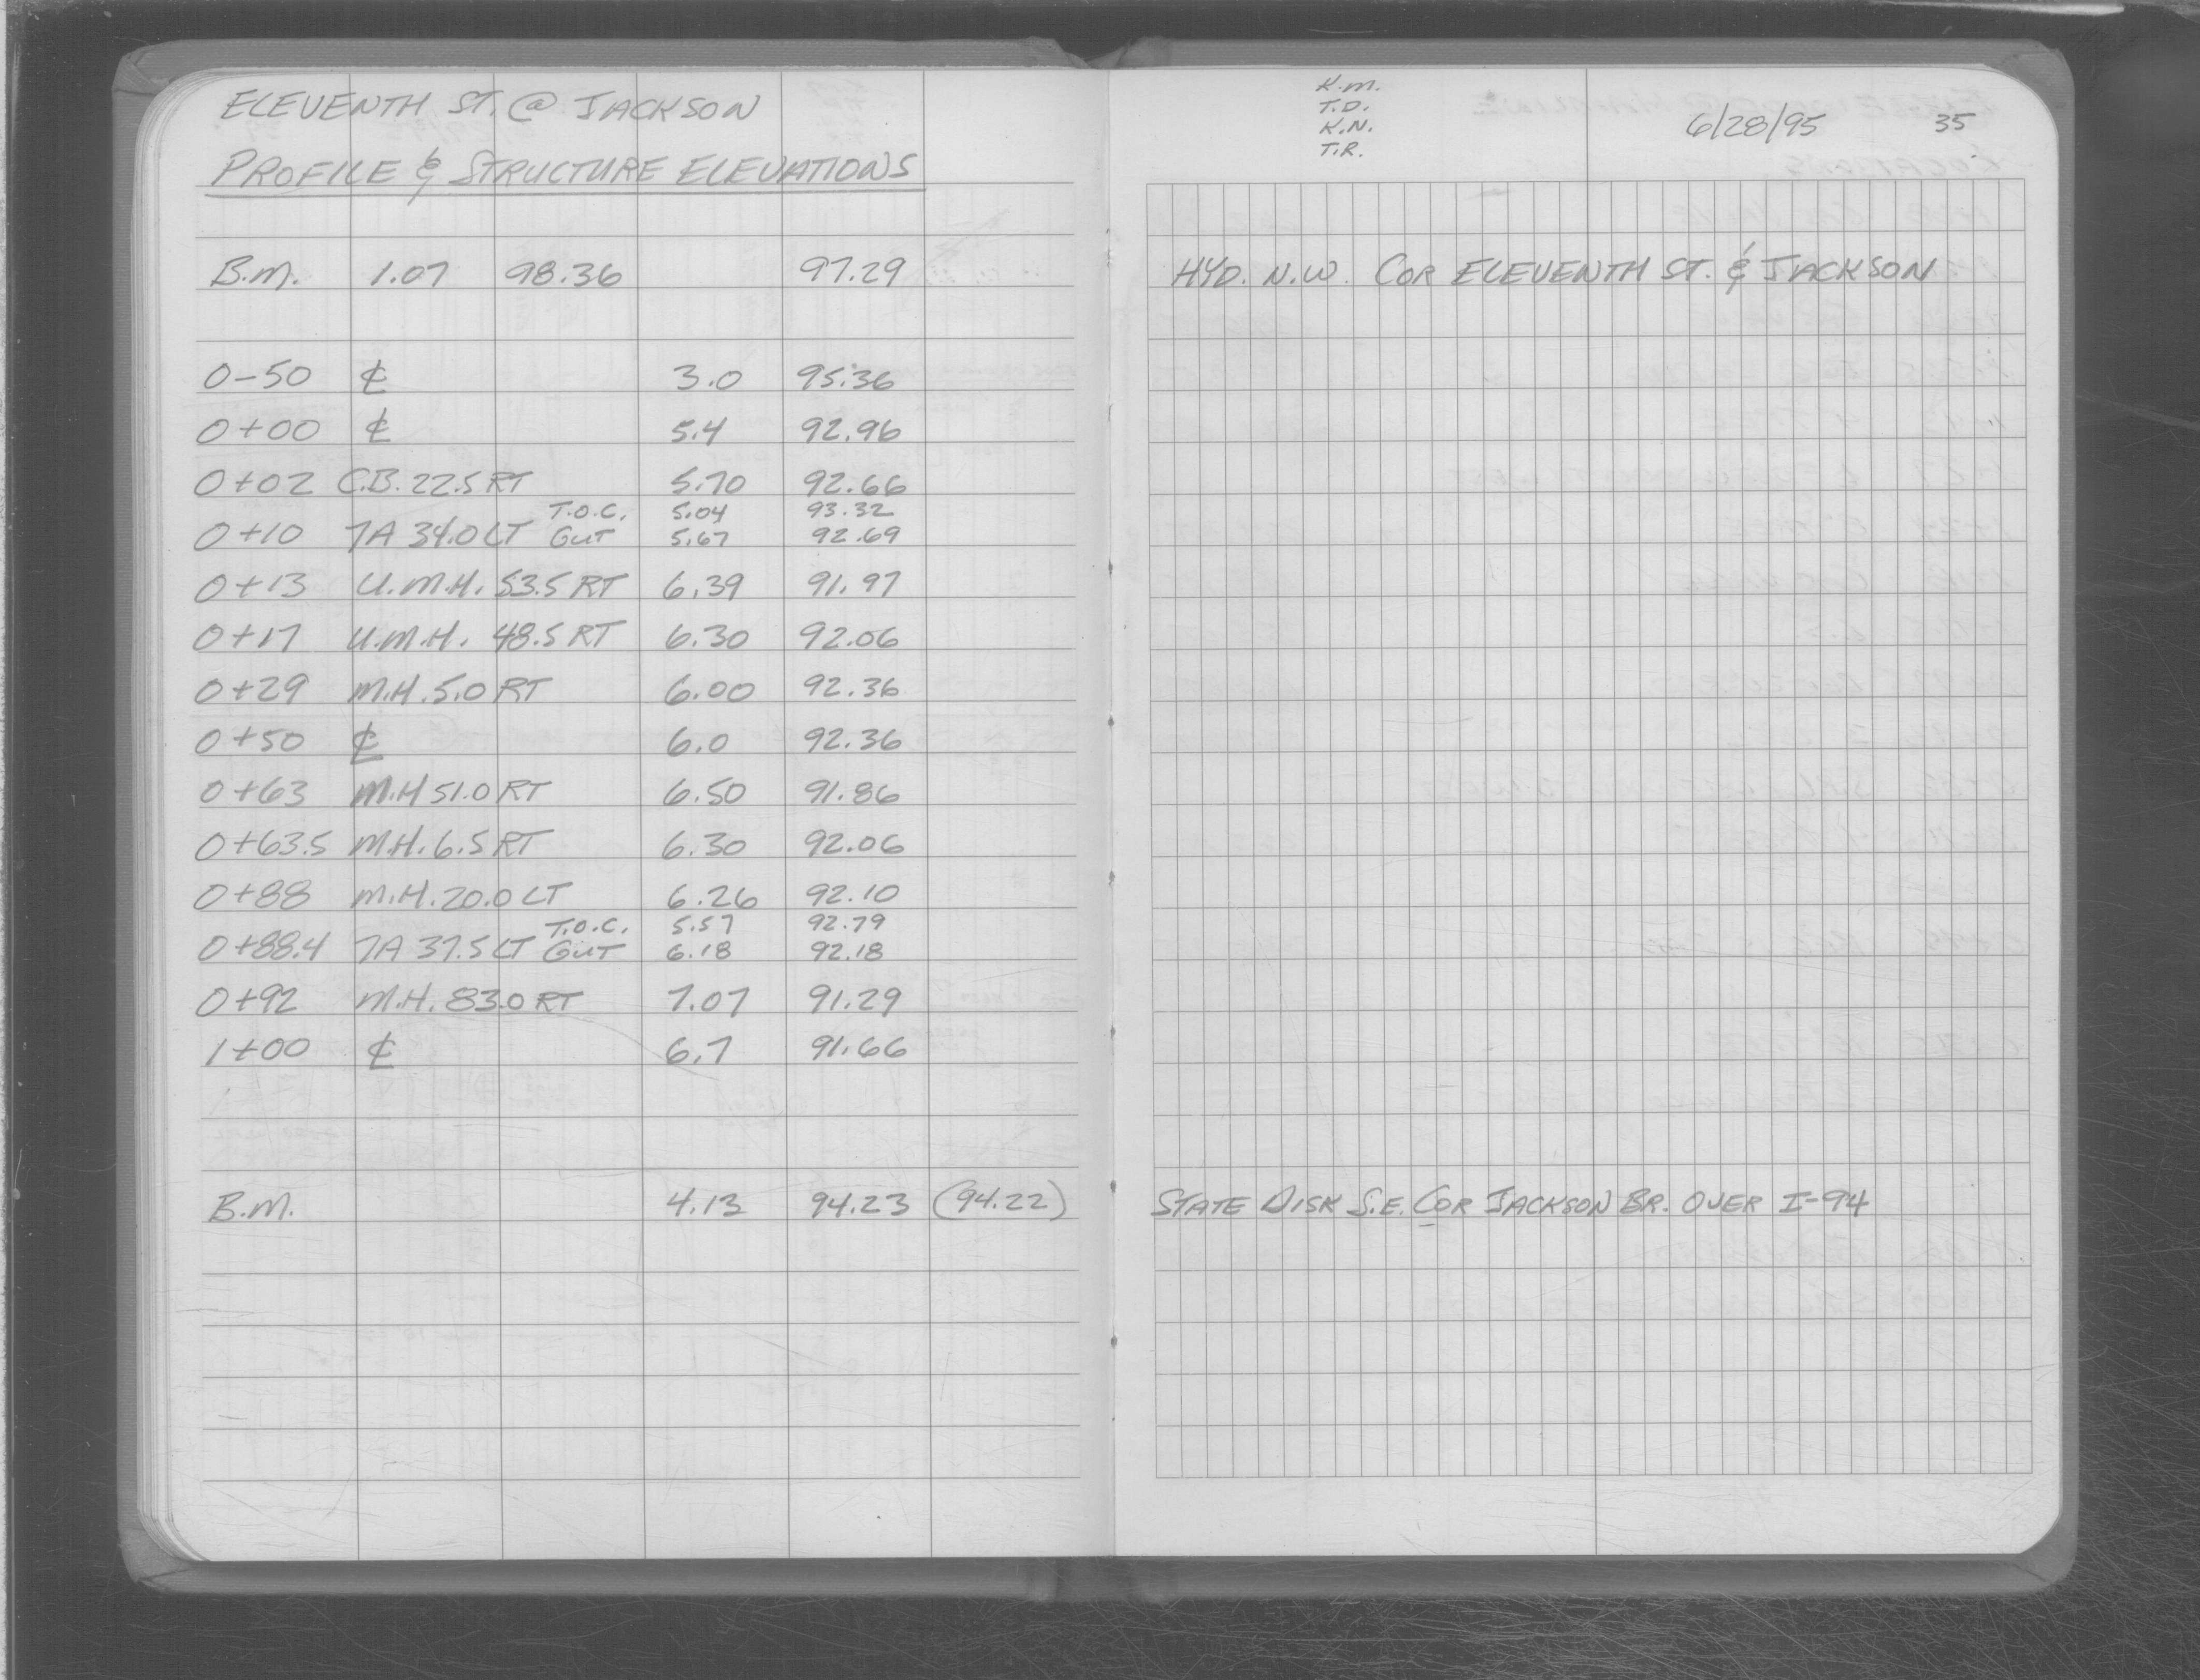 ELEVENTH ST. @ JACKSON
PROFILE & STRUCTURE ELEVATIONS
B.M. 1.07 98.36 97.29
0-50 ℄ 3.0 95.36
0+00 ℄ 5.4 92.96
0+02 C.B. 22.5 RT 5.70 92.66
T.O.C. 5.04 93.32
0+10 7A 34.0 LT GUT 5.67 92.69
0+13 U.M.H. 53.5 RT 6.39 91.97
0+17 U.M.H. 48.5 RT 6.30 92.06
0+29 M.H. 5.0 RT 6.00 92.36
0+50 ℄ 6.0 92.36
0+63 M.H 51.0 RT 6.50 91.86
0+63.5 M.H. 6.5 RT 6.30 92.06
0+88 M.H. 20.0 LT 6.26 92.10
T.O.C. 5.57 92.79
0+88.4 7A 37.5 LT GUT 6.18 92.18
0+92 M.H. 83.0 RT 7.07 91.29
1+00 ℄ 6.7 91.66
B.M. 4.13 94.23 (94.22)
K.M.
T.D.
K.N.
T.R.
6/28/95 35
HYD. N.W. COR ELEVENTH ST. & JACKSON
STATE DISK S.E. COR JACKSON BR. OVER I-94